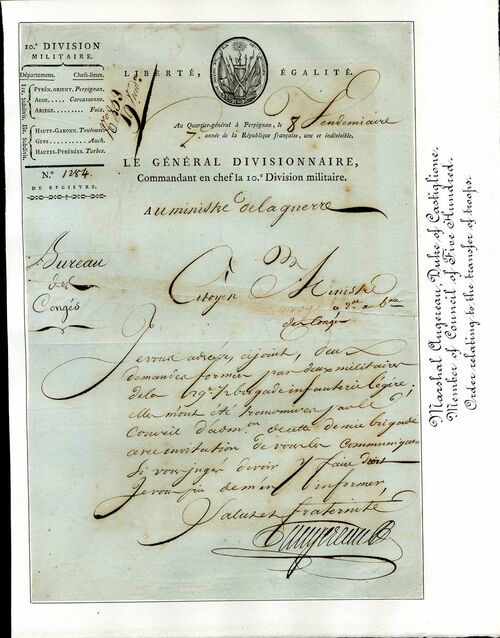 10.e DIVISION
MILITAIRE.
Département. Chefs-lieux.
Ire. Subdivis.
PYRÉN. ORIENT. Perpignan.
AUDE.... Carcassonne.
ARIÈGE........ Foix.
IIe. Subdivis.
HAUTE-GARONN. Toulouse.
GERS........ Auch.
HAUTES-PYRÉNÉES. Tarbes.
N.o 1284.
DU REGISTRE.
LIBERTÉ, ÉGALITÉ.
Au Quartier-général à Perpignan, le 8 Vendemiaire
7.e année de la République française, une et indivisible.
LE GÉNÉRAL DIVISIONNAIRE,
Commandant en chef la 10.e Division militaire.
Au ministre de la guerre
Bureau
des
Congés
Citoyen Ministre
du Congé
Je vous adresse, cijoint, deux
demandes formées par deux militaires
de la 19.e 1/2 brigade infanterie légère.
elle m'ont été transmises par le
Conseil d'adm.on de cette demie brigade
avec invitation de vous les Communiquer
Si vous jugés devoir y faire droit
Je vous prie de m'en informer,
Salut et fraternité
Augereau
Marshal Augereau, Duke of Castiglione.
Member of Council of Five Hundred.
Order relating to the transfer of troops.